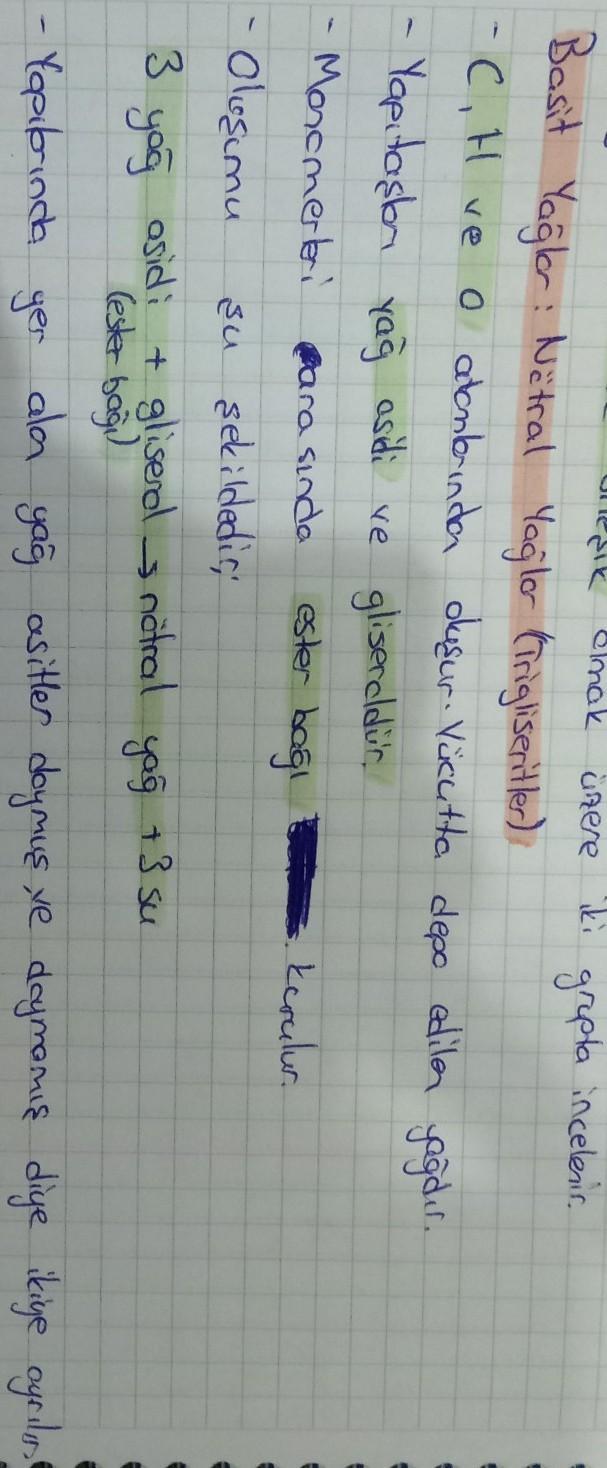 olmak üzere iki grupta incelenir.
Basit Yağlar: Nötral Yağlar (Trigliseritler)
- C, H ve O atomlarından oluşur. Vücutta depo edilen yağdır.
- Yapıtaşları yağ asidi ve gliseroldür.
- Monomerleri arasında ester bağı kurulur.
- Oluşumu şu şekildedir;
3 yağ asidi + gliserol → nötral yağ + 3 su
(ester bağı)
- Yapılarında yer alan yağ asitler doymuş ve doymamış diye ikiye ayrılır